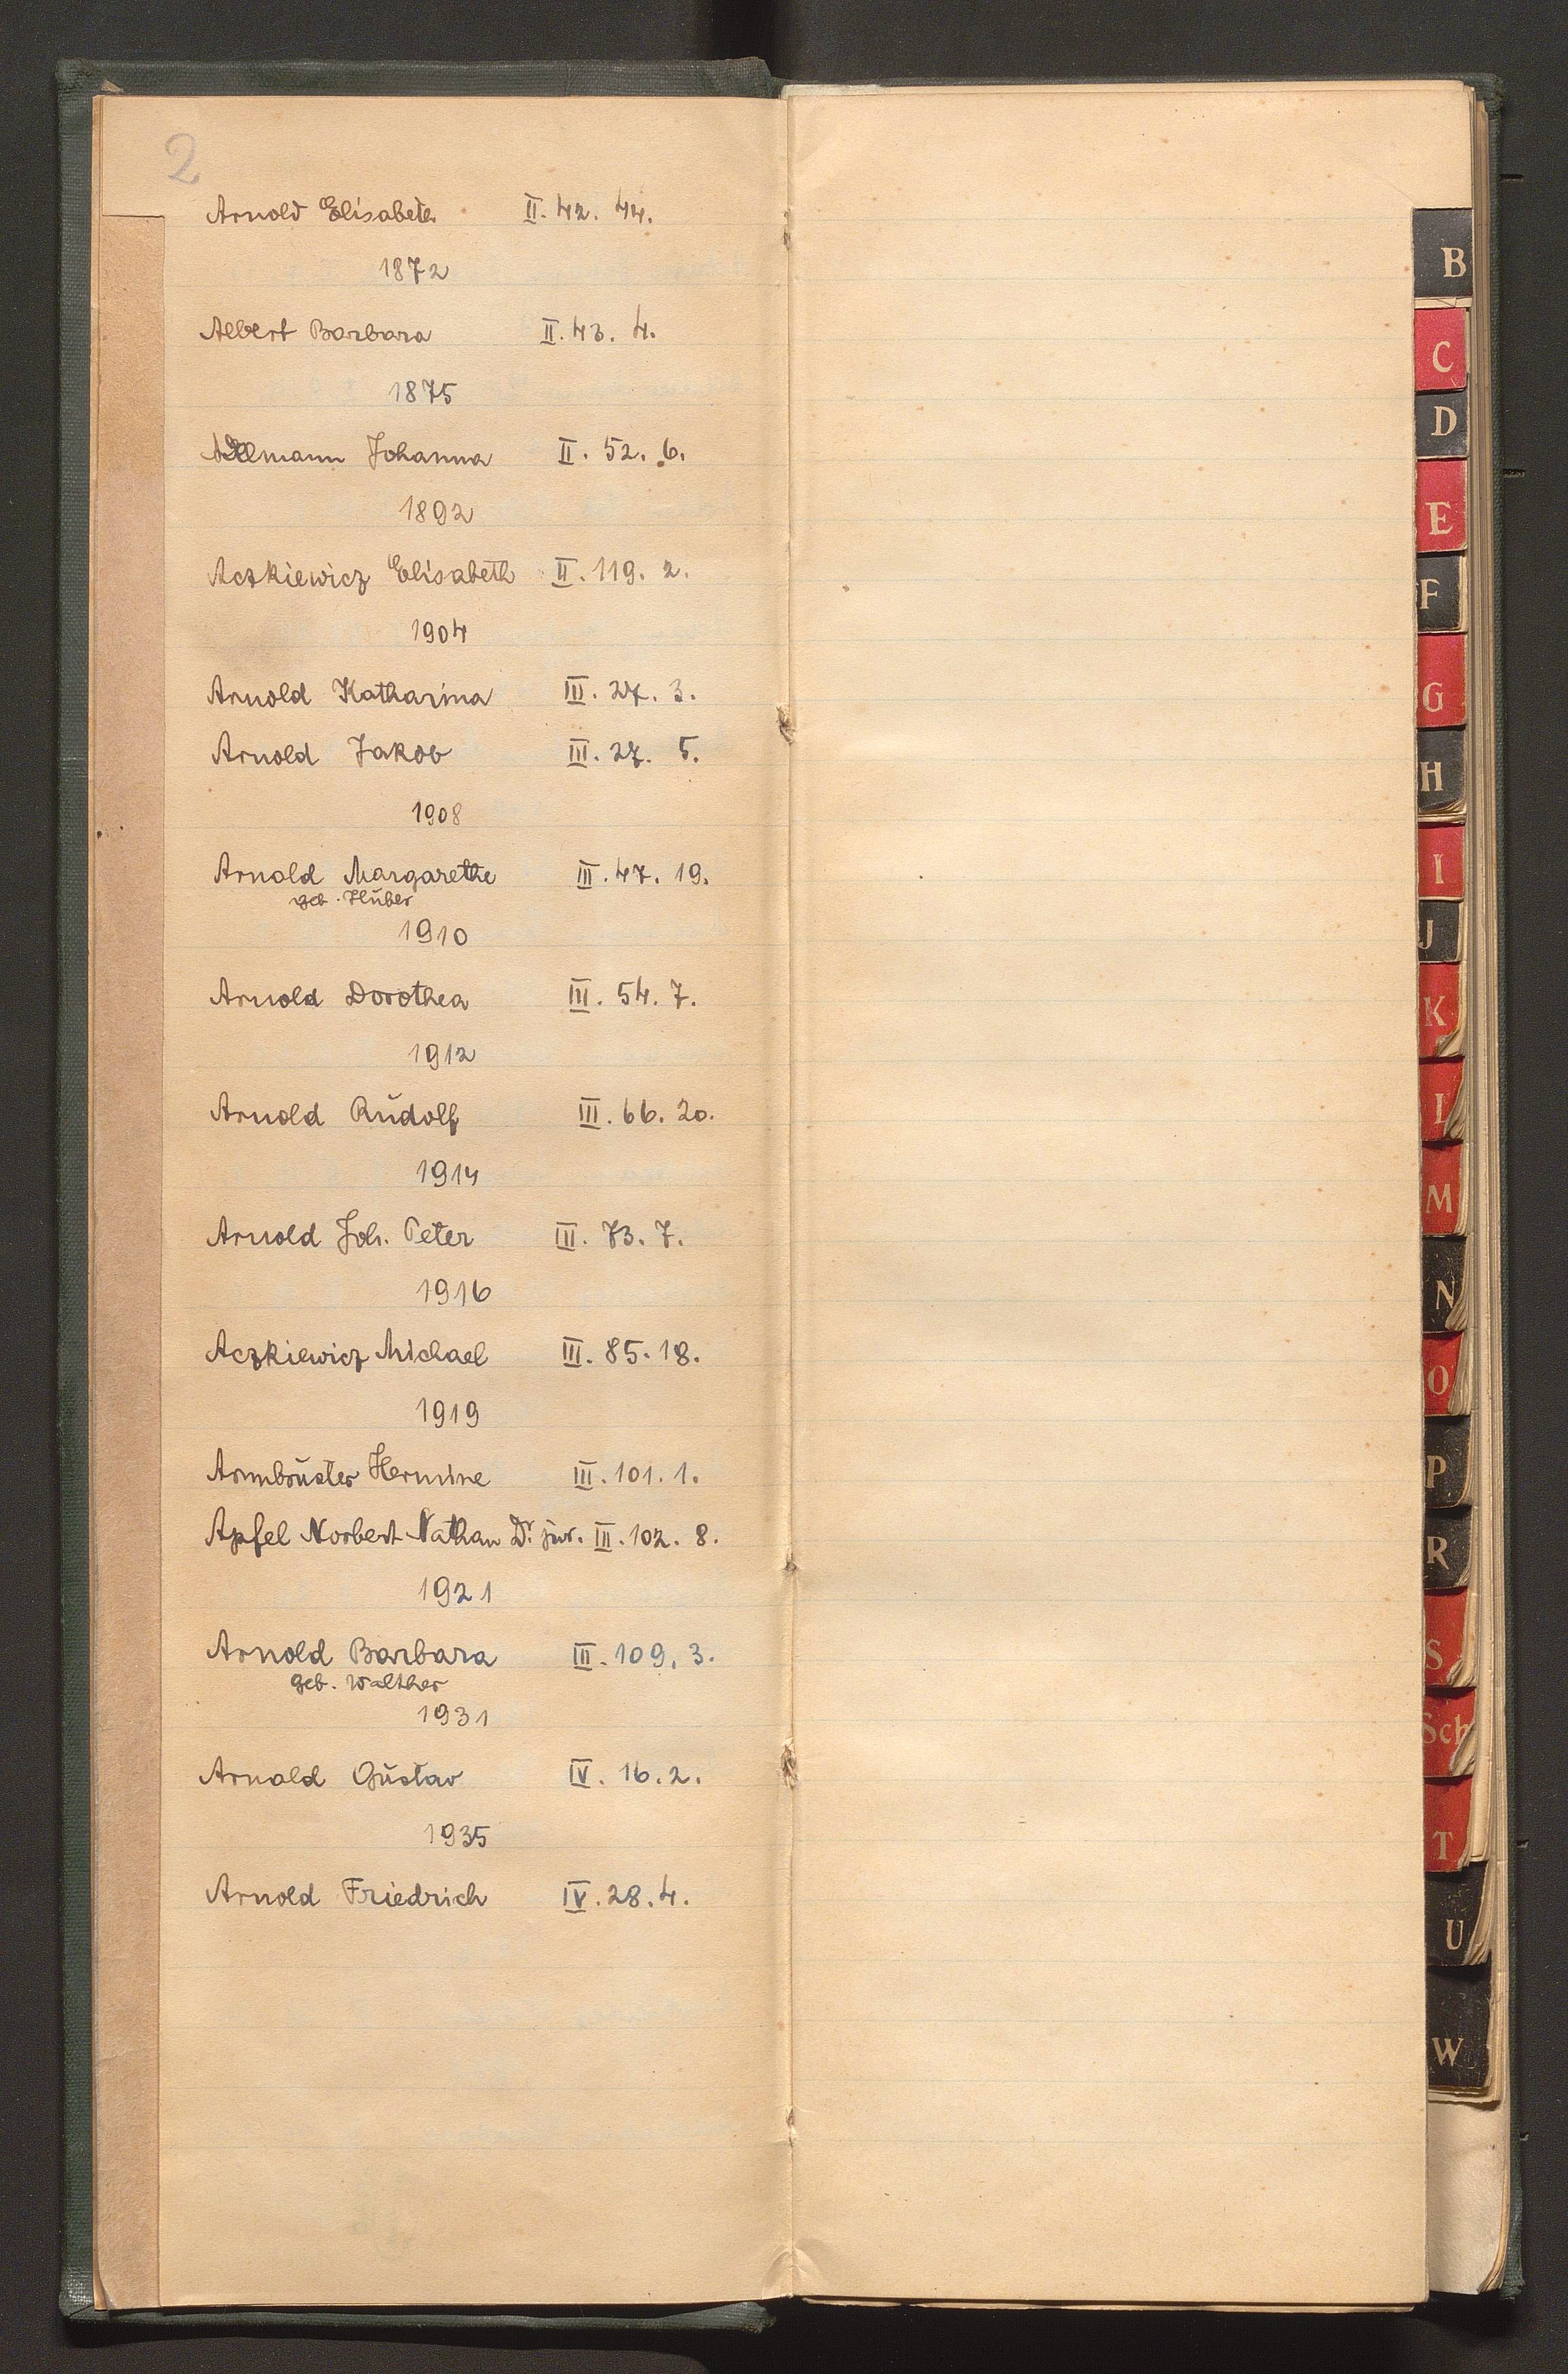 2
Arnold Elisabeth II. 42. 44.
1872
Albert Barbara II. 43. 4.
1875
Allmann Johanna II. 52. 6.
1892
Aczkiewicz Elisabeth II. 119. 2.
1904
Arnold Katharina III. 27. 3.
Arnold Jakob III. 27. 5.
1908
Arnold Margarethe III. 47. 19.
geb. Huber
1910
Arnold Dorothea III. 54. 7.
1912
Arnold Rudolf III. 66. 20.
1914
Arnold Joh. Peter III. 73. 7.
1916
Aczkiewicz Michael III. 85. 18.
1919
Armbruster Hermine III. 101. 1.
Apfel Norbert Nathan Dr. jur. III. 102. 8.
1921
Arnold Barbara III. 109. 3.
geb. Walther
1931
Arnold Gustav IV. 16. 2.
1935
Arnold Friedrich IV. 28. 4.
B
C
D
E
F
G
H
I
J
K
L
M
N
O
P
R
S
Sch
T
U
W